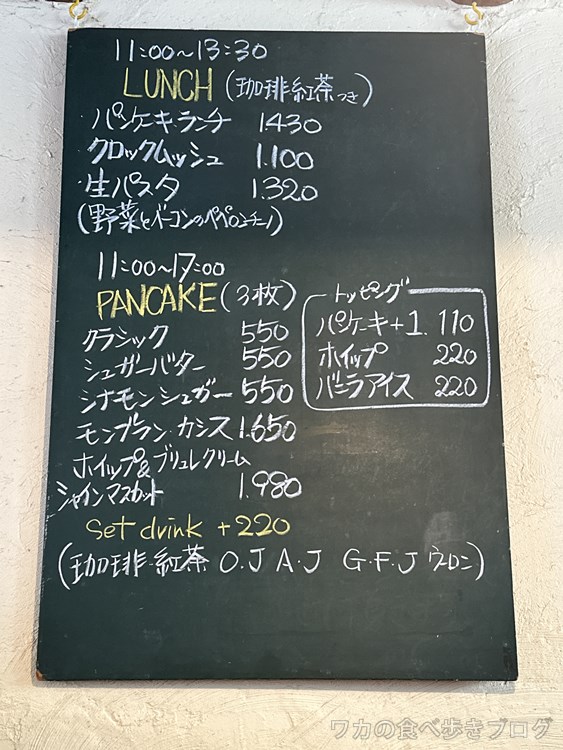 11:00~13:30
LUNCH (珈琲・紅茶つき)
パンケーキランチ 1.430
クロックムッシュ 1.100
生パスタ 1.320
(野菜とベーコンのペペロンチーノ)
11:00~17:00
PANCAKE (3枚)
クラシック 550
シュガーバター 550
シナモンシュガー 550
モンブラン・カシス 1.650
ホイップ&ブリュレクリーム
シャインマスカット 1.980
トッピング
パンケーキ+1. 110
ホイップ 220
バニラアイス 220
Set drink +220
(珈琲・紅茶 O.J A.J G.F.J ウーロン)
ワカの食べ歩きブログ